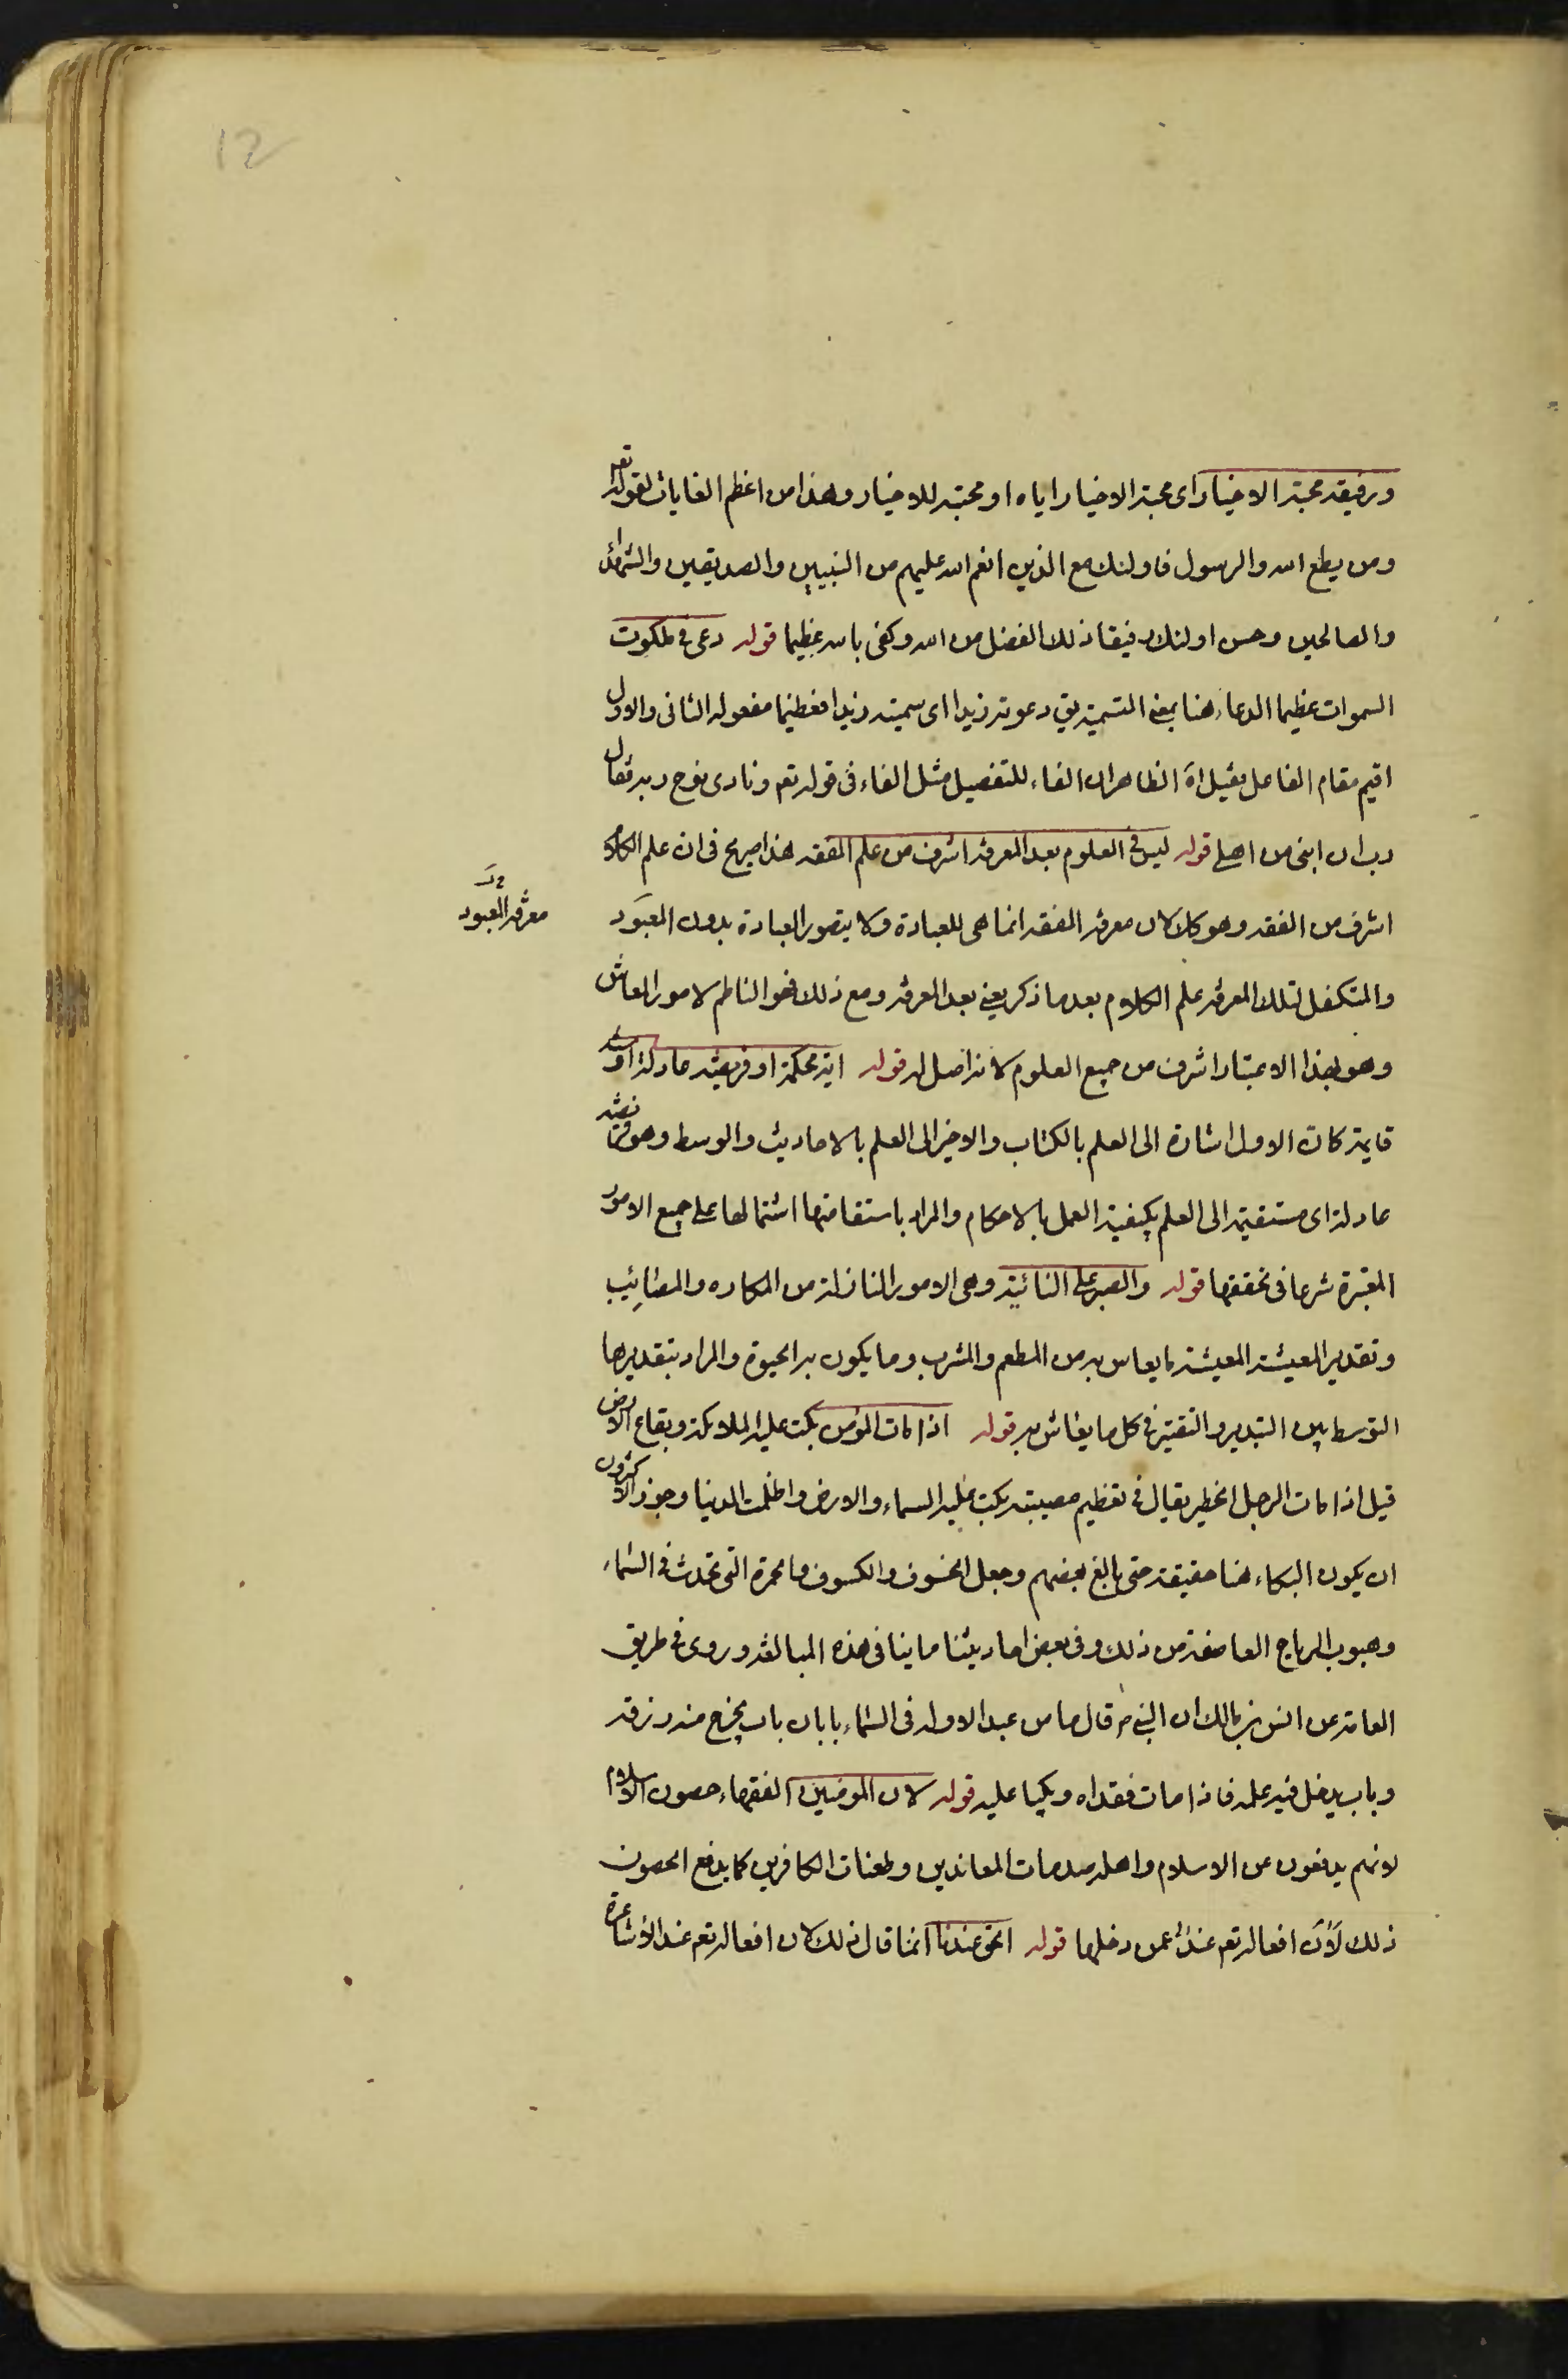 12
ورفيقه محبة الاخيار اى محبة الاخيار اياه او محبته للاخيار وهذا من اعظم الغايات لقوله تعه
ومن يطع الله والرسول فاولئك مع الذين انعم الله عليهم من النبيين والصديقين والشهداء
والصالحين وحسن اولئك رفيقا ذلك الفضل من الله وكفى بالله عظيما قوله دعى فى ملكوت
السموات عظيما الدعاء هنا بمعنى التسمية يق دعوته زيدا اى سميته زيدا فعظيما مفعوله الثانى والاول
اقيم مقام الفاعل فقيل اه الظاهر ان الفاء للتفصيل مثل الفاء فى قوله تعه ونادى نوح ربه فقال
رب ان ابنى من اهلى قوله ليس فى العلوم بعد المعرفة اشرف من علم الفقه هذا صريح فى ان علم الكلام
اشرف من الفقه وهو كك لان معرفة الفقه انما هى للعبادة ولا يتصور العبادة بدون المعبود
معرفة المعبود
والمتكفل لتلك المعرفة علم الكلام بعد ما ذكر يعنى بعد المعرفة ومع ذلك فهو الناظم لامور المعاش
وهو بهذا الاعتبار اشرف من جميع العلوم لانه اصل له قوله اية محكمة او فريضة عادلة او سنة
قايمة كان الاول اشارة الى العلم بالكتاب والاخير الى العلم بالاحاديث والوسط وهو فريضة
عادلة اى مستقيمة الى العلم بكيفية العمل بالاحكام والمراد باستقامتها اشتمالها على جميع الامور
المعتبرة شرعا فى تحققها قوله والصبر على النائبة وهى الامور النازلة من المكاره والمصائب
وتقدير المعيشة المعيشة ما يعاس به من المطعم والمشرب وما يكون به الحيوة والمراد بتقديرها
التوسط بين التبذير والتقتير فى كل ما يعاش به قوله اذا مات المؤمن بكت عليه الملائكة وبقاع الارض
قيل اذا مات الرجل الخطير يقال فى تعظيم مصيبته بكت عليه السماء والارض واظلمت الدنيا وجوز الاكثرون
ان يكون البكاء هنا حقيقة حتى بالغ بعضهم وجعل الخسوف والكسوف والحمرة التى تحدث فى السماء
وهبوب الرياح العاصفة من ذلك وفى بعض احاديثنا ما ينافى هذه المبالغة وروى فى طريق
العامة عن انس بن مالك ان النبى ص قال ما من عبد الا وله فى السماء بابان باب يخرج منه رزقه
وباب يدخل فيه عمله فاذا مات فقداه وبكيا عليه قوله لان المؤمنين الفقهاء حصون الاسلام
لانهم يدفعون عن الاسلام واهله صدمات المعاندين وطعنات الكافرين كما يدفع الحصون
ذلك عمن دخلها قوله الحق عندنا انما قال ذلك لان افعاله تعه عند الاشاعرة